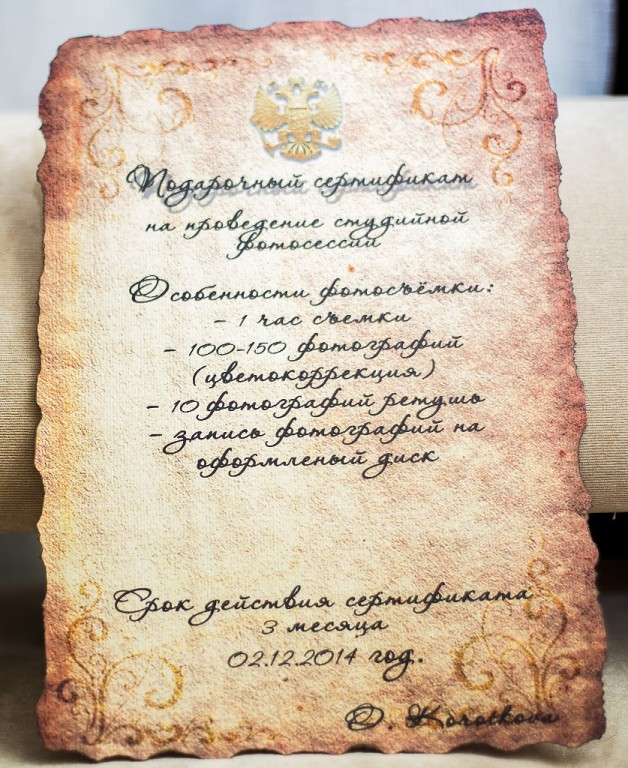 Подарочный сертификат
на проведение студийной
фотосессии
Особенности фотосъёмки:
- 1 час съемки
- 100-150 фотографий
(цветокоррекция)
- 10 фотографий ретушь
- запись фотографий на
оформленый диск
Срок действия сертификата
3 месяца
02.12.2014 год.
O. Korotkova